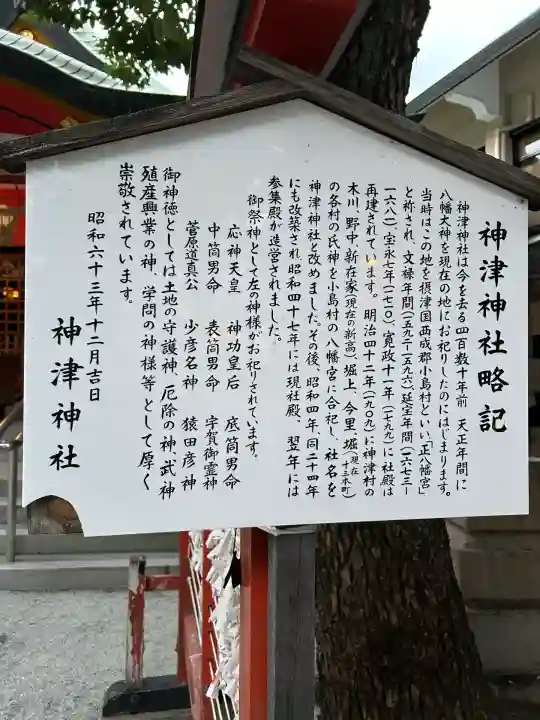 神津神社略記
神津神社は今を去る四百数十年前、天正年間に
八幡大神を現在の地にお祀りしたのにはじまります。
当時はこの地を摂津国西成郡小島村といい、「正八幡宮」
と称され、文禄年間(一五九二ー一五九六)延宝年間(一六七三ー
一六八一)、宝永七年(一七一〇)、寛政十一年(一七九九)に社殿は
再建されています。明治四十二年(一九〇九)に神津村の
木川、野中、新在家(現在の新高)堀上、今里、堀(現在十三本町)
の各村の氏神を小島村の八幡宮に合祀し、社名を
神津神社と改めました。その後、昭和四年、同二十四年
にも改築され、昭和四十七年には現社殿、翌年には
参集殿が造営されました。
御祭神として左の神様がお祀りされています。
応神天皇 神功皇后 底筒男命
中筒男命 表筒男命 宇賀御霊神
菅原道真公 少彦名神 猿田彦神
御神徳としては土地の守護神、厄除の神、武神
殖産興業の神、学問の神様等として厚く
崇敬されています。
昭和六十三年十二月吉日
神津神社